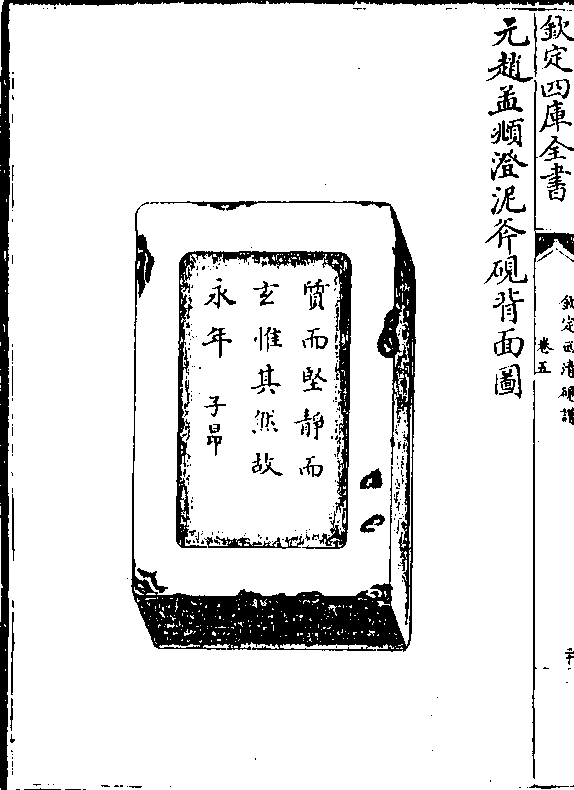 欽定四庫全書
欽定西清硯譜
卷五
元趙孟頫澄泥斧硯背面圖
質而堅靜而
玄惟其然故
永年 子昂